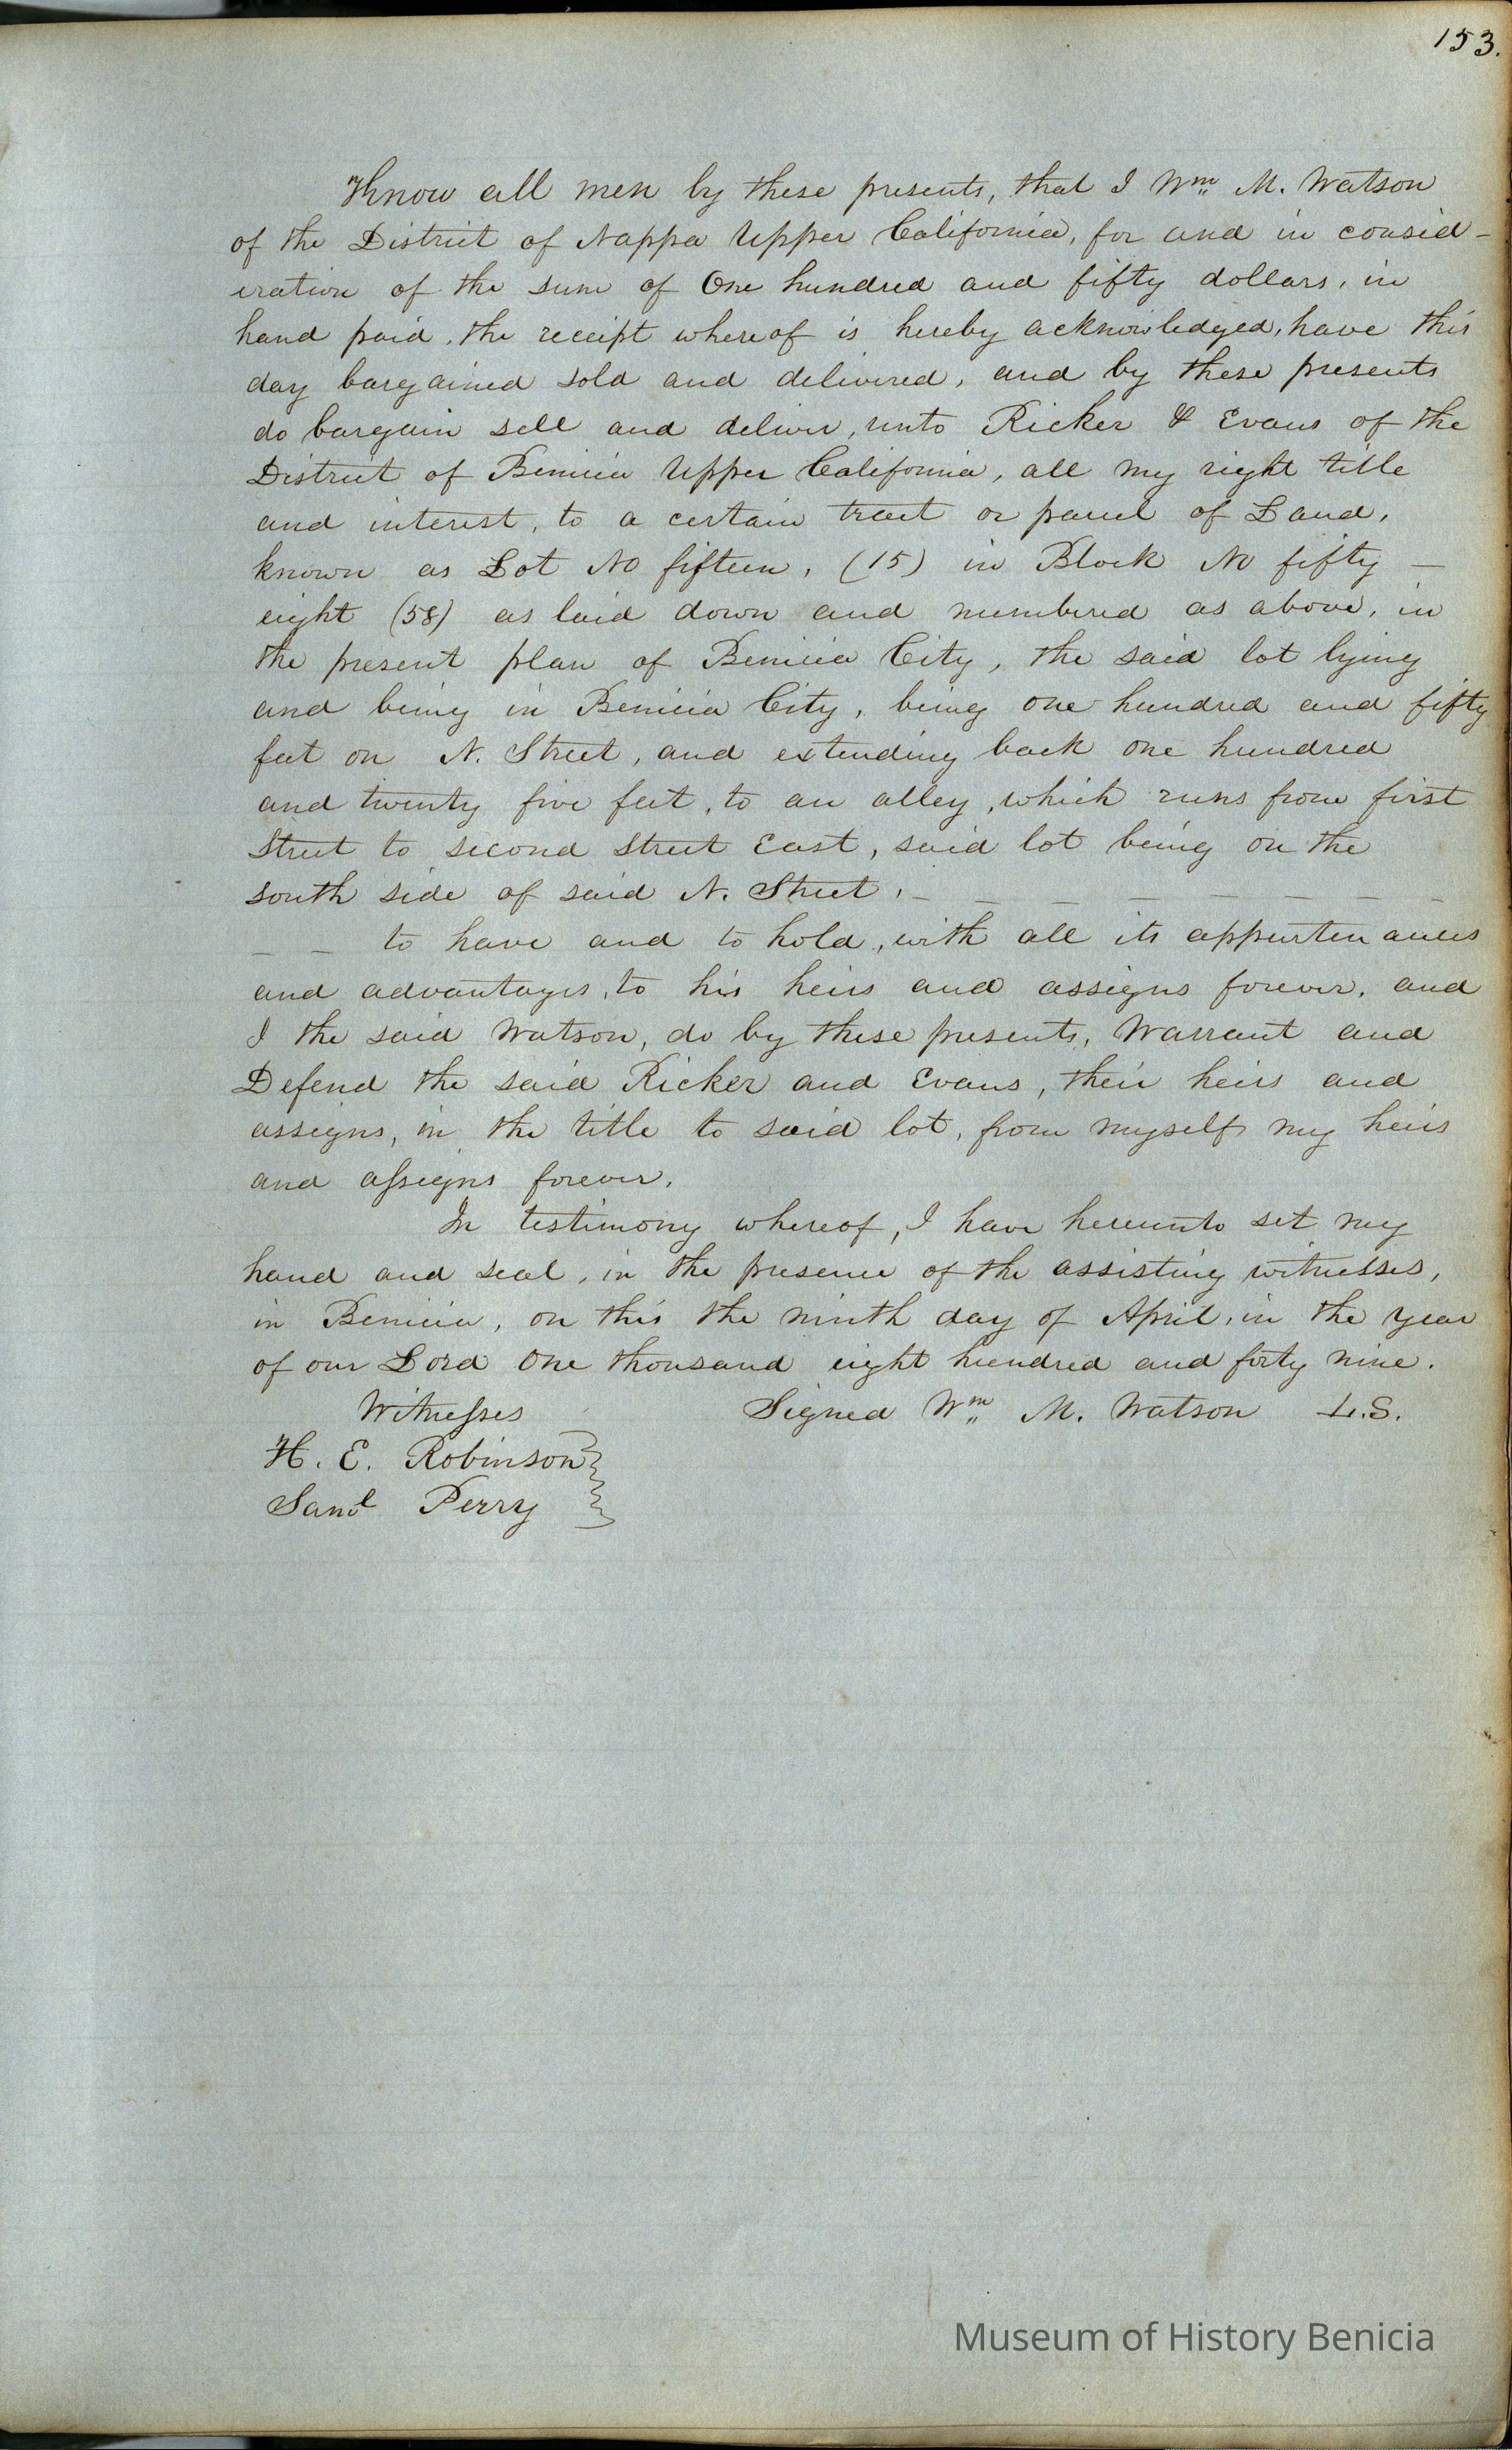 153.
Know all men by these presents, that I Wm M. Watson
of the District of Nappa Upper California, for and in consid-
eration of the sum of One hundred and fifty dollars, in
hand paid, the receipt whereof is hereby acknowledged, have this
day bargained sold and delivered, and by these presents
do bargain sell and deliver, unto Ricker & Evans of the
District of Benicia Upper California, all my right title
and interest, to a certain tract or parcel of Land,
known as Lot No fifteen, (15) in Block No fifty —
eight (58) as laid down and numbered as above, in
the present plan of Benicia City, the said lot lying
and being in Benicia City, being one hundred and fifty
feet on N. Street, and extending back one hundred
and twenty five feet, to an alley, which runs from first
Street to second Street East, said lot being on the
south side of said N. Street, — — — — — — —
— — to have and to hold, with all its appurtenances
and advantages, to his heirs and assigns forever, and
I the said Watson, do by these presents, Warrant and
Defend the said Ricker and Evans, their heirs and
assigns, in the title to said lot, from myself my heirs
and assigns forever.
In testimony whereof, I have hereunto set my
hand and seal, in the presence of the assisting witnesses,
in Benicia, on this the ninth day of April, in the year
of our Lord One thousand eight hundred and forty nine.
Witnesses Signed Wm M. Watson L.S.
H. E. Robinson
Saml Perry
Museum of History Benicia